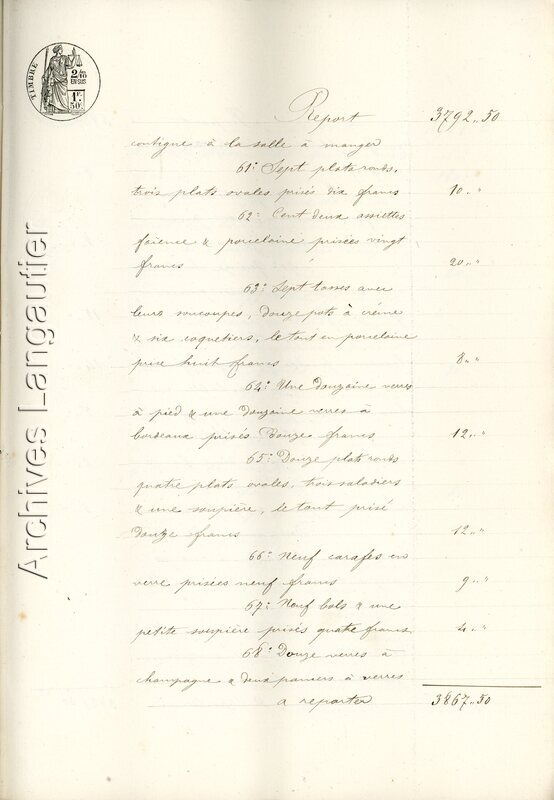 TIMBRE
2/10
EN SUS
1F.
50c.
Archives Langautier
Report 3792 „ 50
contigue à la salle à manger
61° Sept plats ronds,
trois plats ovales prisés dix francs 10 „ "
62° Cent deux assiettes
faience & porcelaine prisées vingt
francs 20 „ "
63° Sept tasses avec
leurs soucoupes, douze pots à crème
& six coquetiers, le tout en porcelaine
prisé huit francs 8 „ "
64° Une douzaine verres
à pied & une douzaine verres à
bordeaux prisés Douze francs 12 „ "
65° Douze plats ronds
quatre plats ovales, trois saladiers
& une soupière, le tout prisé
douze francs 12 „ "
66° Neuf carafes en
verre prisées neuf francs 9 „ "
67° Neuf bols & une
petite soupière prisés quatre francs 4 „ "
68° Douze verres à
champagne & deux paniers à verres
a reporter 3867 „ 50